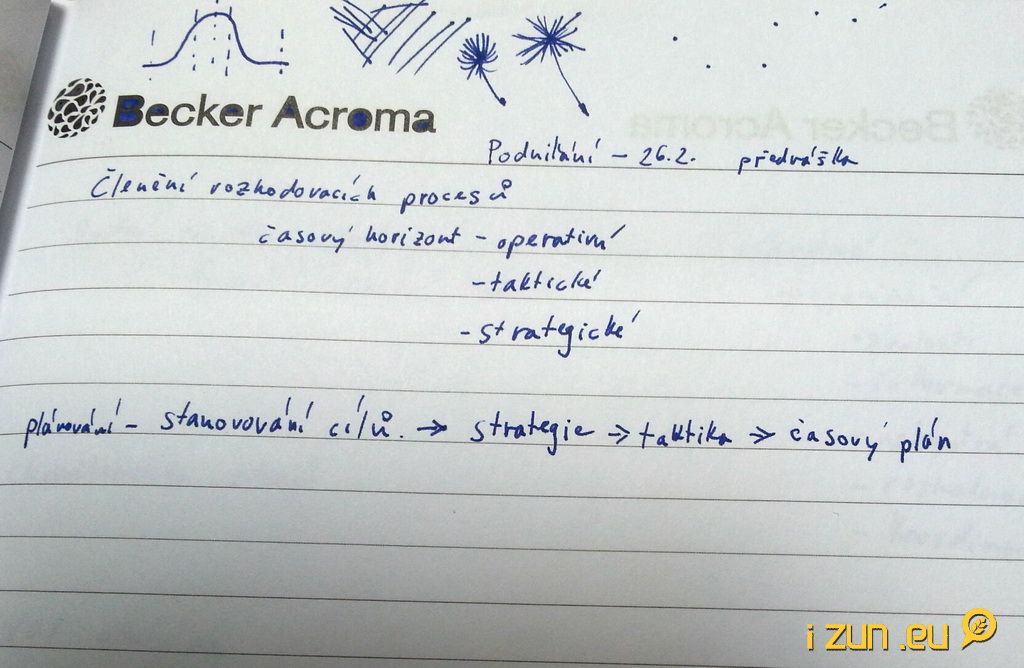 Becker Acroma
Podnikání - 26.2. předváška
Členění rozhodovacích procesů
časový horizont - operativní
- taktické
- strategické
plánování - stanovování cílů. → strategie → taktika → časový plán
i zun .eu